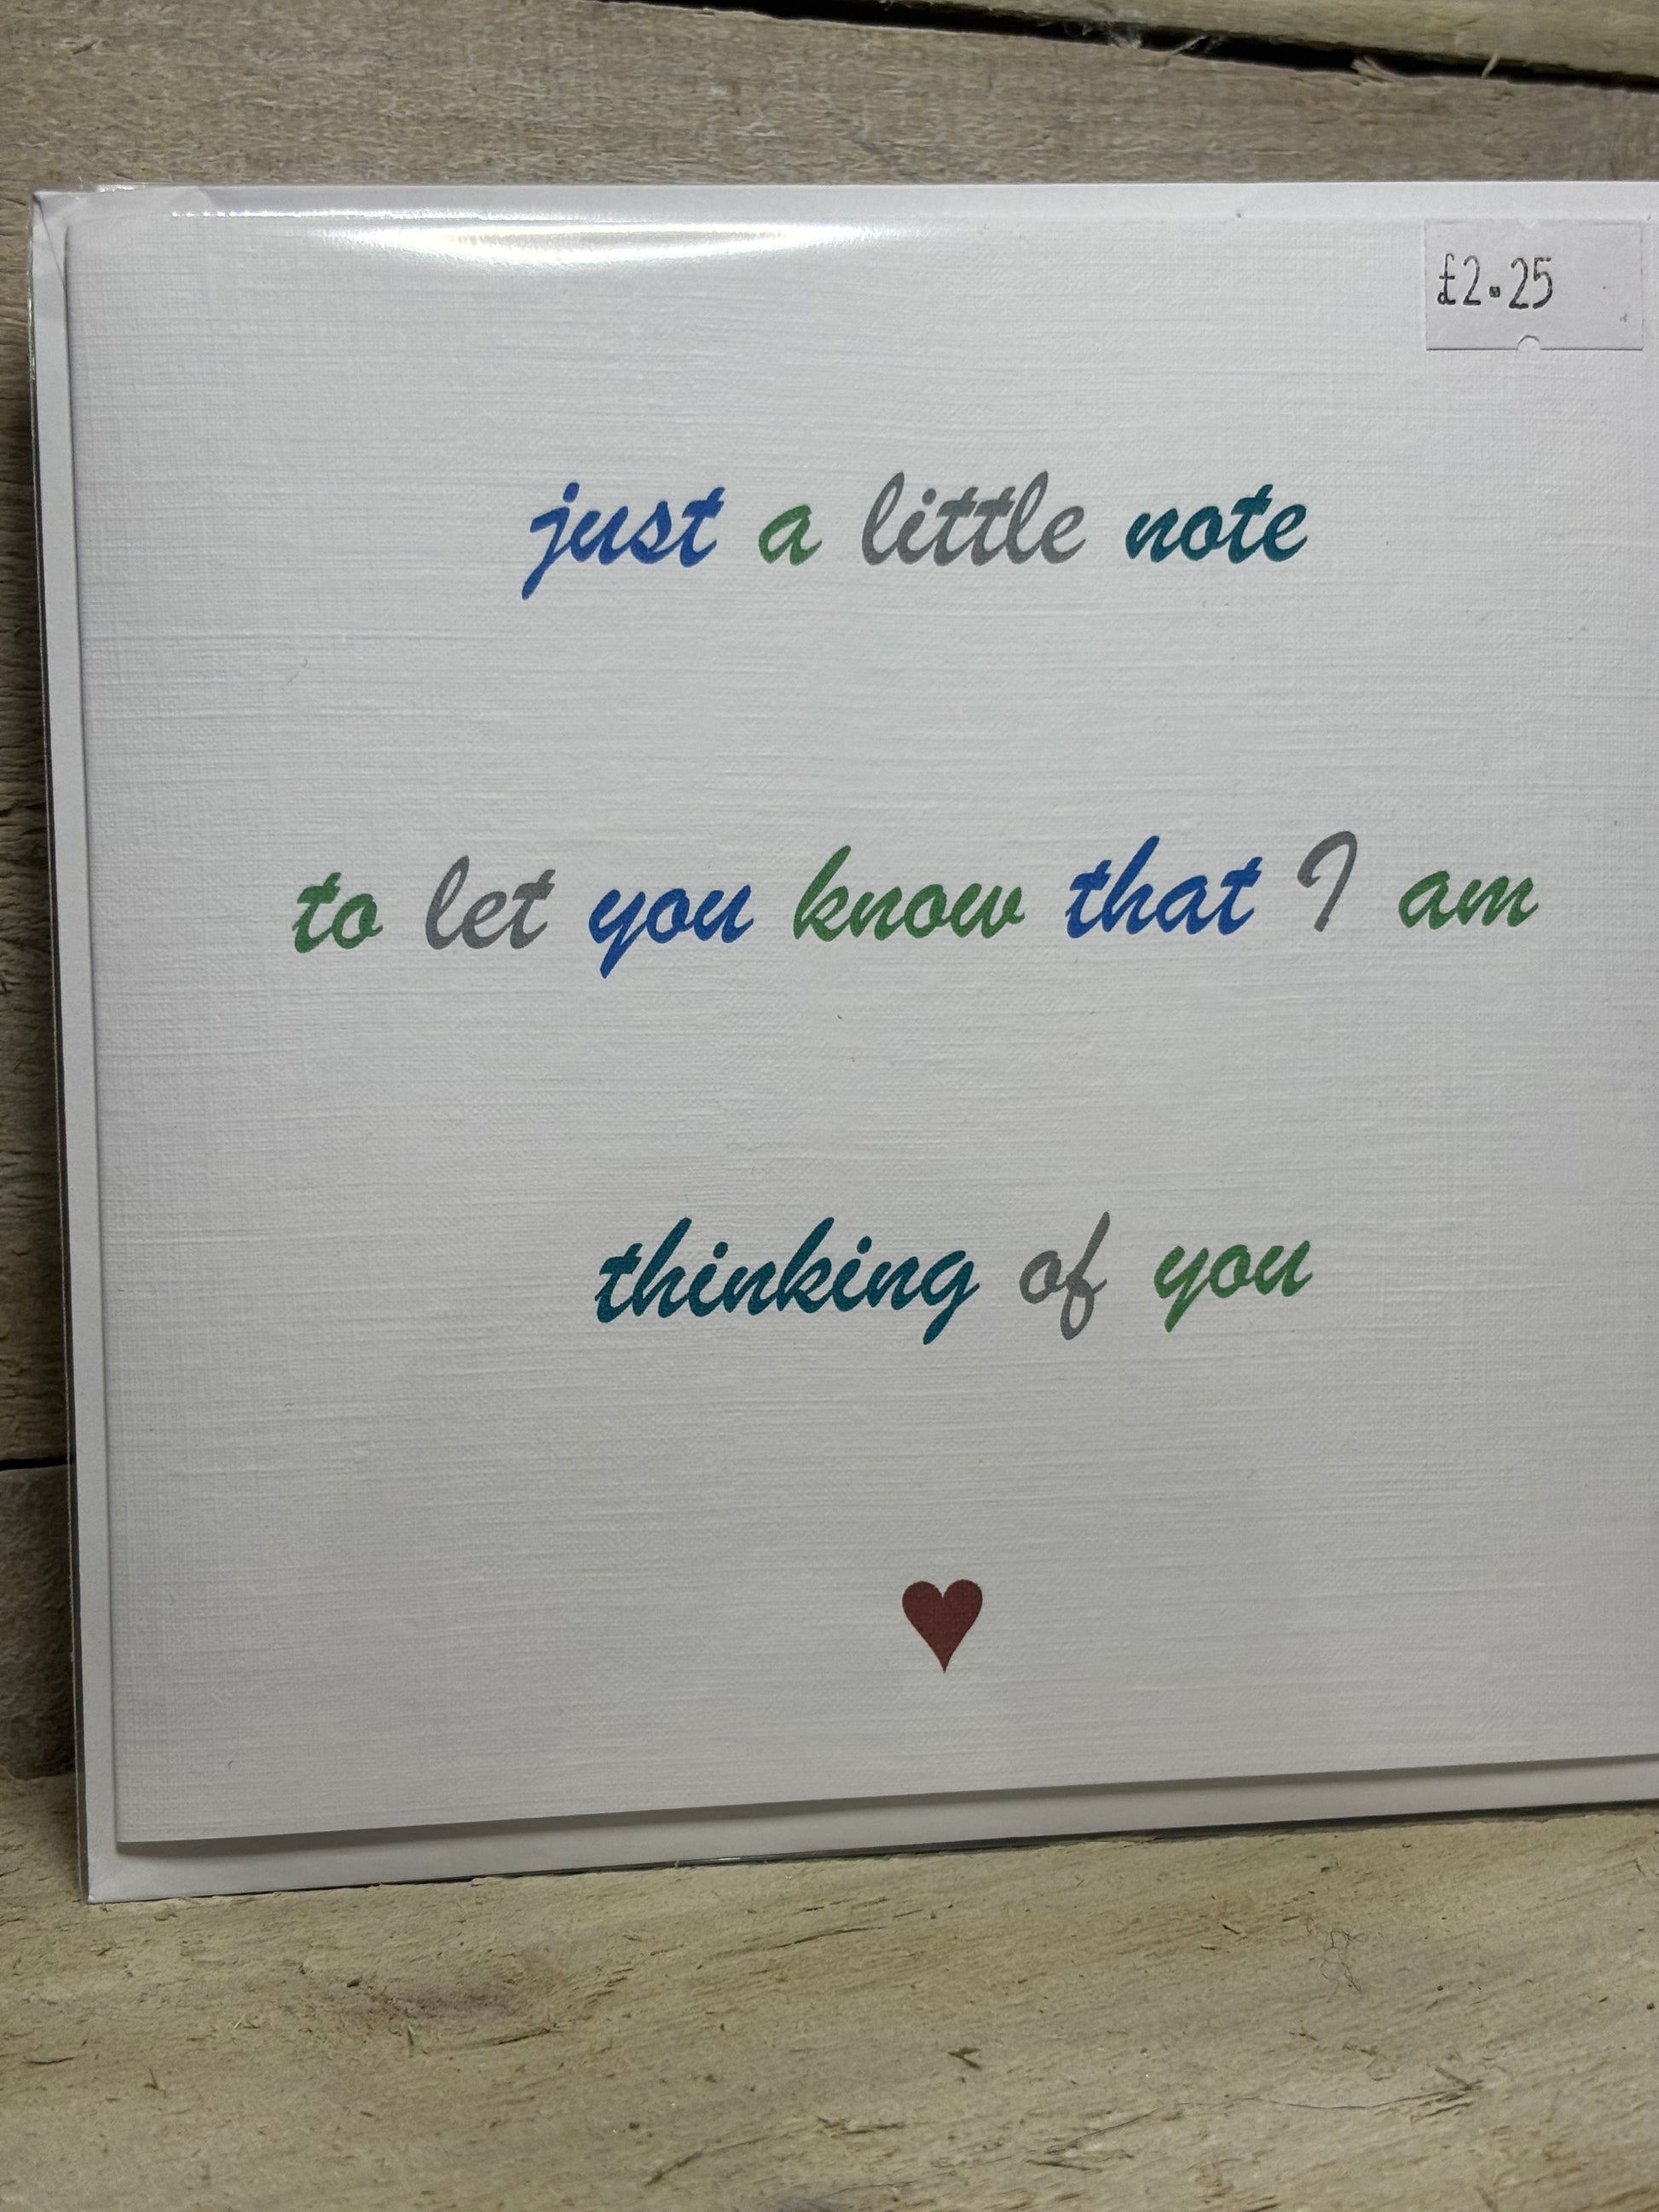 £2.25
just a little note
to let you know that I am
thinking of you